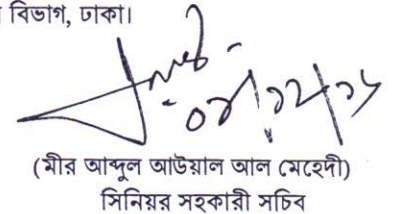 বিভাগ, ঢাকা।
(মীর আব্দুল আউয়াল আল মেহেদী)
সিনিয়র সহকারী সচিব